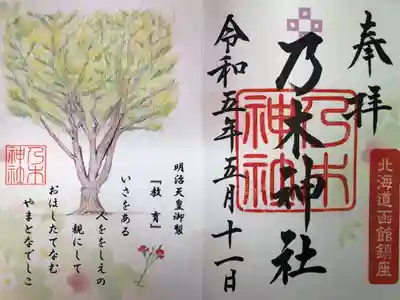 奉拝
乃木神社
乃木神社
北海道函館鎮座
令和五年五月十一日
明治天皇御製
『教育』
いさをある
人ををしえの
親にして
おほしたてなむ
やまとなでしこ
乃木神社